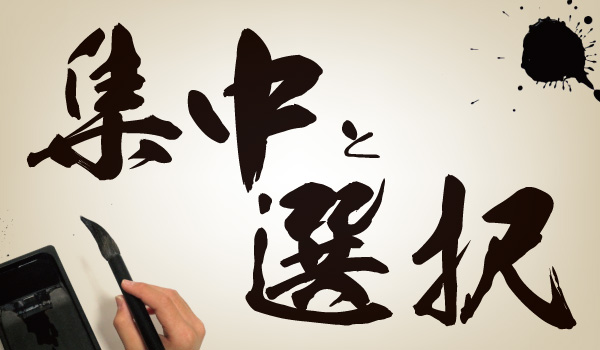 集中と
選択